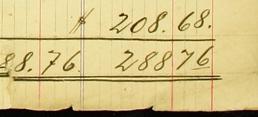 208.68.
88.76. 28876